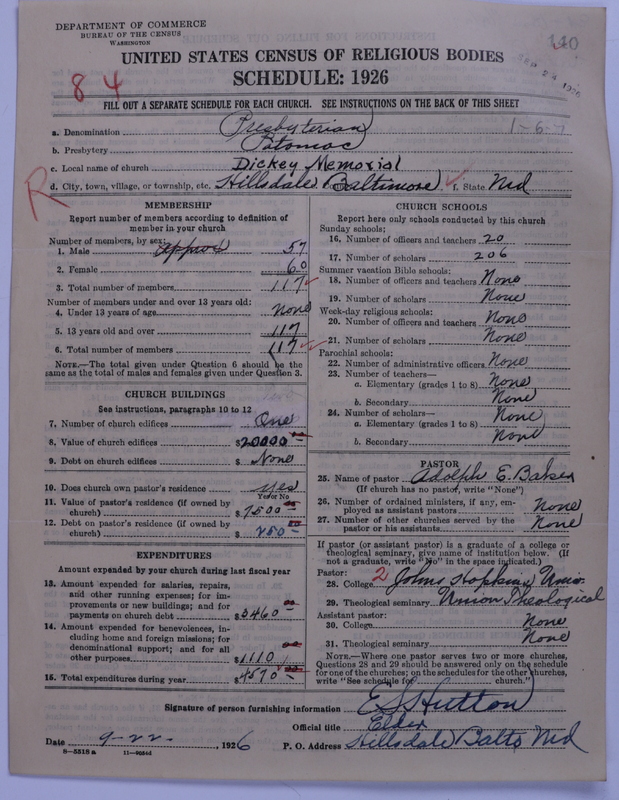 DEPARTMENT OF COMMERCE
BUREAU OF THE CENSUS
WASHINGTON
140
UNITED STATES CENSUS OF RELIGIOUS BODIES
SCHEDULE: 1926
84
FILL OUT A SEPARATE SCHEDULE FOR EACH CHURCH. SEE INSTRUCTIONS ON THE BACK OF THIS SHEET
a. Denomination Presbyterian 1-6-7
b. Presbytery Potomac
c. Local name of church Dickey Memorial
d. City, town, village, or township, etc. Hillsdale Baltimore f. State Md
R
MEMBERSHIP
Report number of members according to definition of
member in your church
Number of members, by sex: approx
1. Male 57
2. Female 60
3. Total number of members 117
Number of members under and over 13 years old:
4. Under 13 years of age None
5. 13 years old and over 117
6. Total number of members 117
NOTE.—The total given under Question 6 should be the
same as the total of males and females given under Question 3.
CHURCH BUILDINGS
See instructions, paragraphs 10 to 12
7. Number of church edifices One
8. Value of church edifices $20000
9. Debt on church edifices $ None
10. Does church own pastor's residence yes
Yes or No
11. Value of pastor's residence (if owned by
church) $7500
12. Debt on pastor's residence (if owned by
church) $ 250
EXPENDITURES
Amount expended by your church during last fiscal year
13. Amount expended for salaries, repairs,
and other running expenses; for im-
provements or new buildings; and for
payments on church debt $3460
14. Amount expended for benevolences, in-
cluding home and foreign missions; for
denominational support; and for all
other purposes $1110
15. Total expenditures during year $4570
CHURCH SCHOOLS
Report here only schools conducted by this church
Sunday schools:
16. Number of officers and teachers 20
17. Number of scholars 206
Summer vacation Bible schools:
18. Number of officers and teachers None
19. Number of scholars None
Week-day religious schools:
20. Number of officers and teachers None
21. Number of scholars None
Parochial schools:
22. Number of administrative officers None
23. Number of teachers—
a. Elementary (grades 1 to 8) None
b. Secondary None
24. Number of scholars— None
a. Elementary (grades 1 to 8)
b. Secondary None
PASTOR
25. Name of pastor Adolph E. Baker
(If church has no pastor, write "None")
26. Number of ordained ministers, if any, em-
ployed as assistant pastors None
27. Number of other churches served by the
pastor or his assistants None
If pastor (or assistant pastor) is a graduate of a college or
theological seminary, give name of institution below. (If
not a graduate, write "No" in the space indicated.)
Pastor:
28. College 2 Johns Hopkins Univ.
29. Theological seminary Union Theological
Assistant pastor:
30. College None
31. Theological seminary None
NOTE.—Where one pastor serves two or more churches,
Questions 28 and 29 should be answered only on the schedule
for one of the churches; on the schedules for the other churches,
write "See schedule for church."
Signature of person furnishing information E S Hutton
Official title Elder
Date 9-22-, 1926 P. O. Address Hillsdale Balto Md
8-5518a 11-9054d